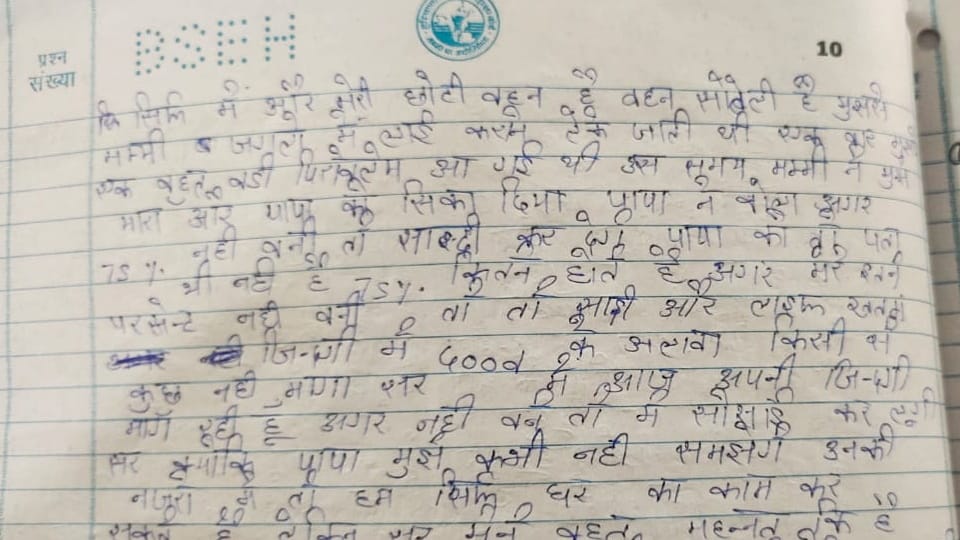 BSEH
10
प्रश्न
संख्या
सिर्फ मैं और मेरी छोटी बहन है बहन सौतेली है मुझसे
मम्मी जंगलो में लाई करम लेके जाती थी एक बार
एक बहुत बडी आ गई थी उस समय मम्मी ने मुझे
मारा और पापा को सिका दिया पापा ने बोला अगर
75%. नही बनी तो सादी कर दुगा पापा को पता
भी नही है 75%. कितने होते है अगर मेरे इतने
परसेन्ट नही बनी तो तो सादी और लाइफ खतम
जिन्दगी में के अलावा किसी से
कुछ नही मांगा सर में आपसे अपनी जिन्दगी
माँग रही हू अगर नही बने तो में कर लूगी
सर क्योकि पापा मुझे कभी नही समझेगे उनकी
नजरो में तो हम सिर्फ घर का काम कर
सकते है लेकिन सर मेने बहुत मेहनत की है